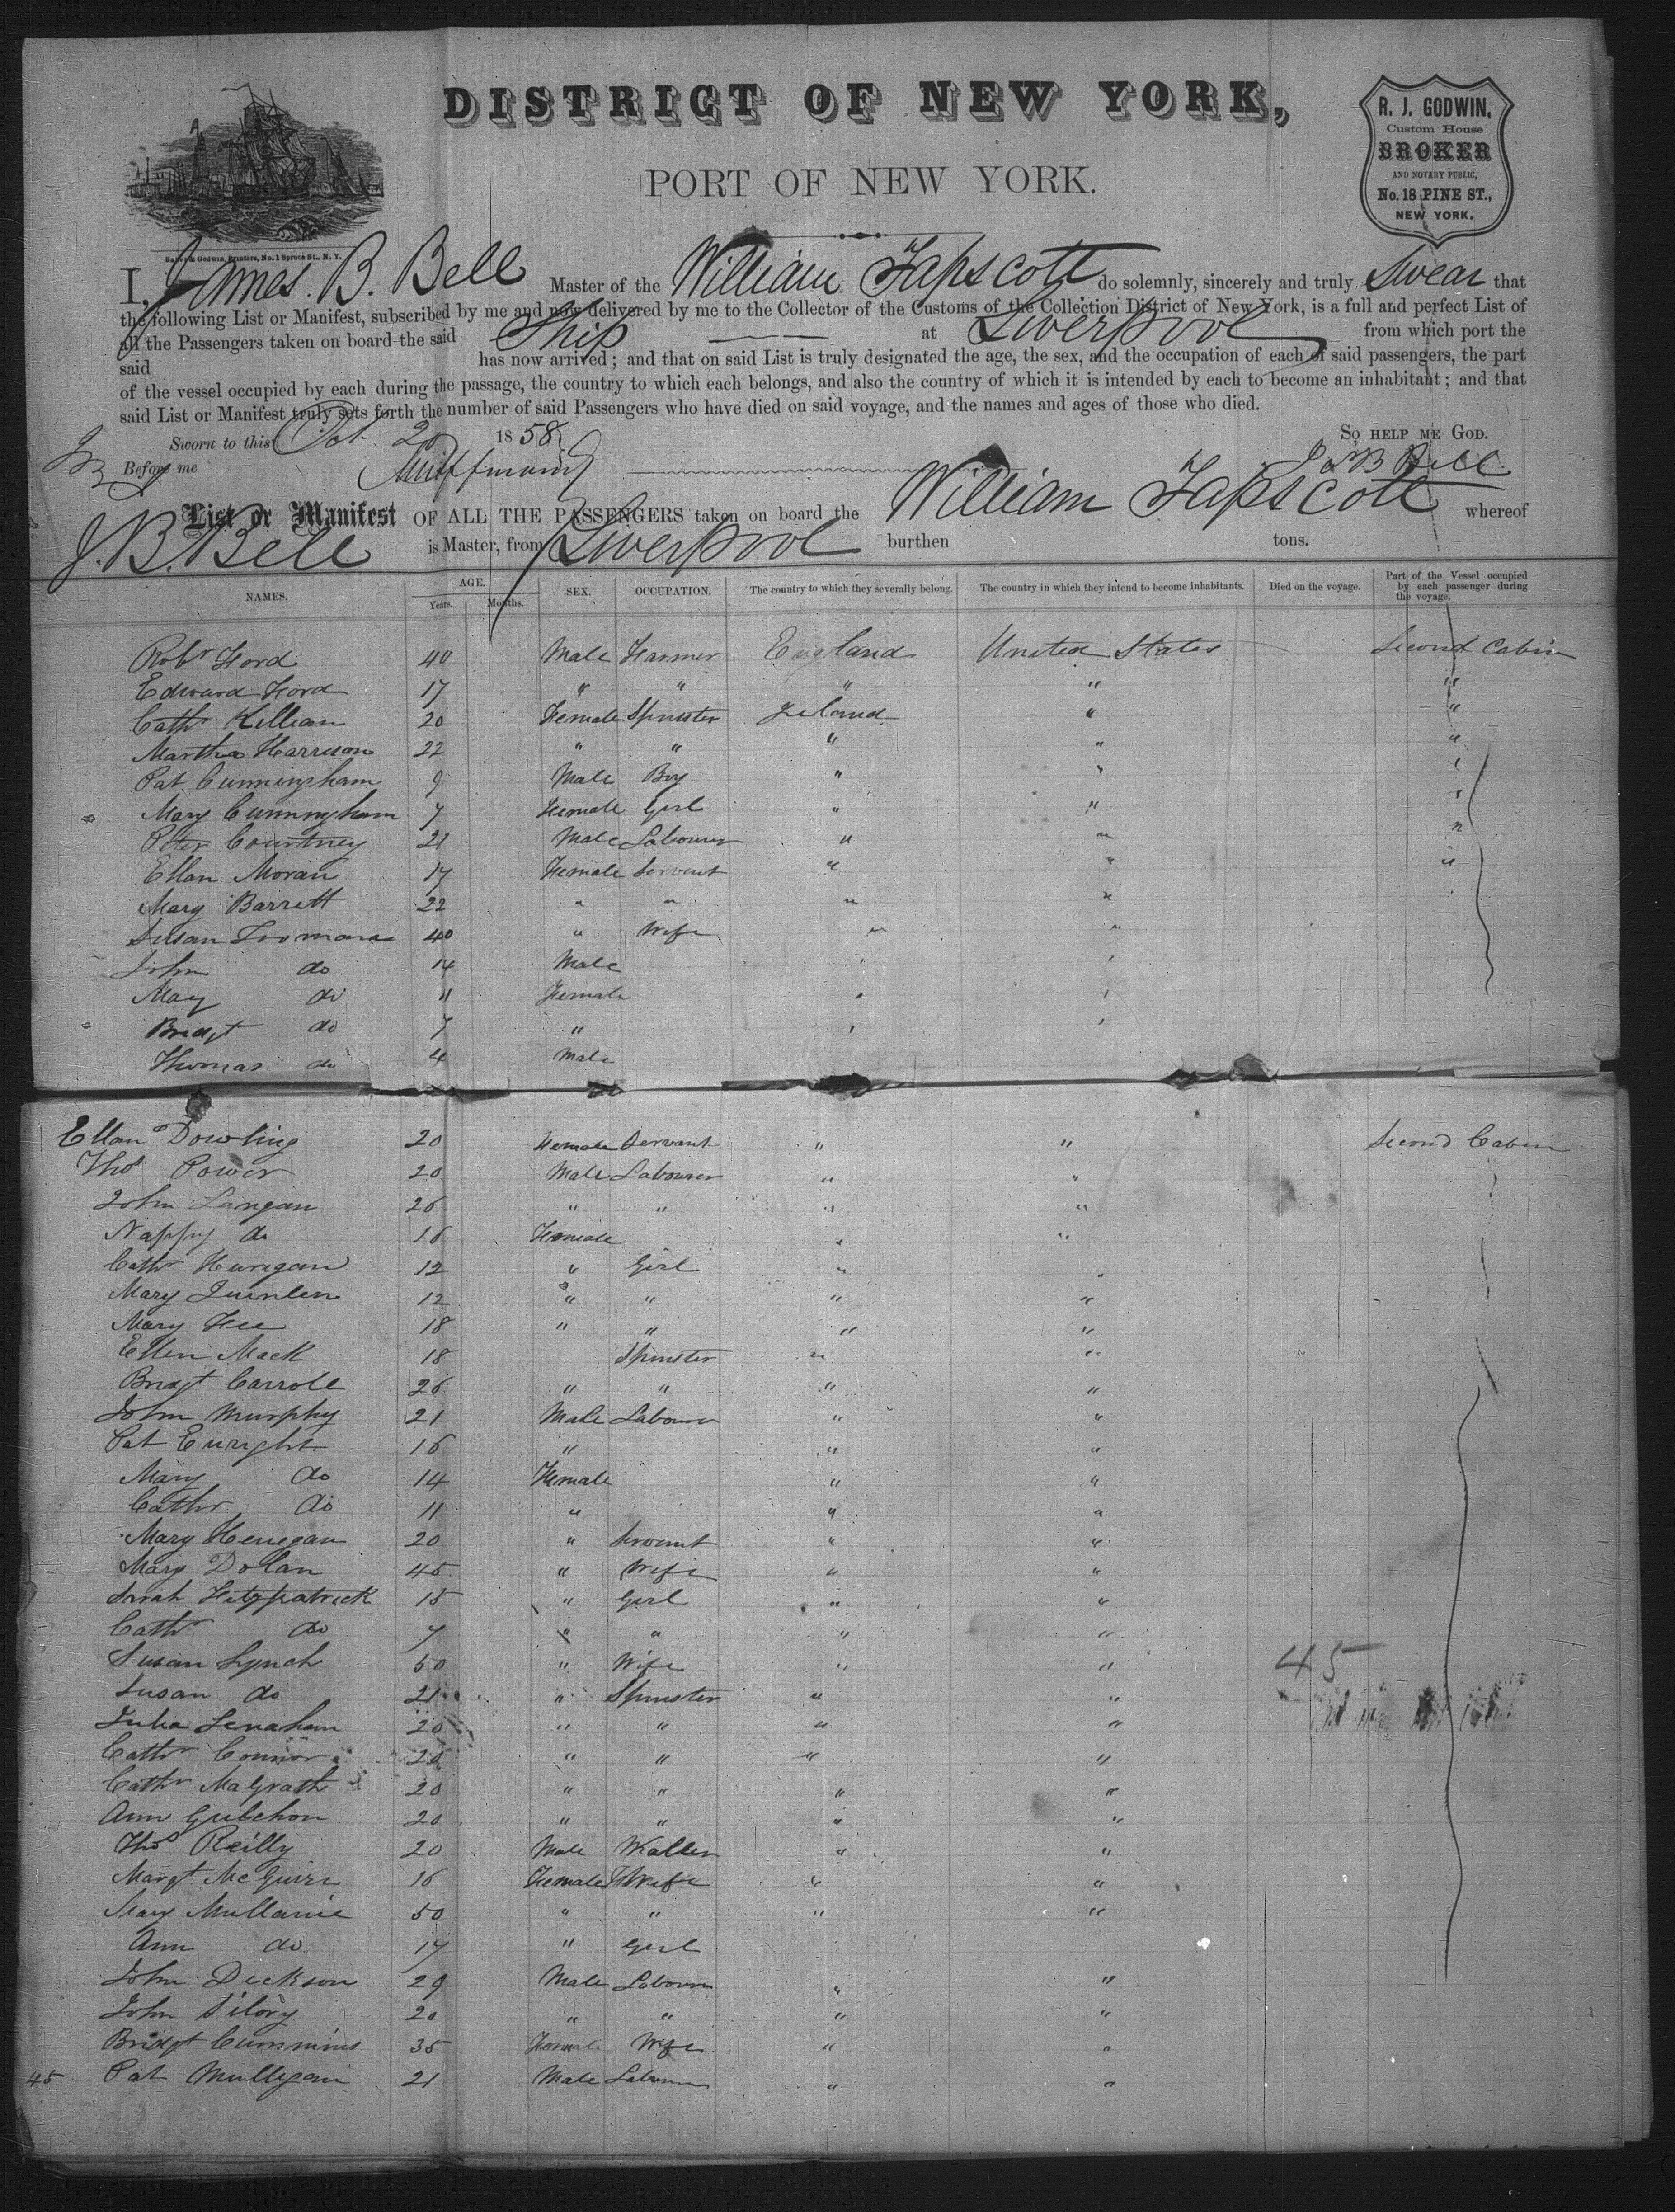 DISTRICT OF NEW YORK,
PORT OF NEW YORK.
R. J. GODWIN,
Custom House
BROKER
AND NOTARY PUBLIC,
No. 18 PINE ST.,
NEW YORK.
Baker & Godwin, Printers, No. 1 Spruce St., N. Y.
I, James. B. Bell Master of the William Tapscott do solemnly, sincerely and truly Swear that
the following List or Manifest, subscribed by me and now delivered by me to the Collector of the Customs of the Collection District of New York, is a full and perfect List of
all the Passengers taken on board the said Ship at Liverpool from which port the
said has now arrived; and that on said List is truly designated the age, the sex, and the occupation of each of said passengers, the part
of the vessel occupied by each during the passage, the country to which each belongs, and also the country of which it is intended by each to become an inhabitant; and that
said List or Manifest truly sets forth the number of said Passengers who have died on said voyage, and the names and ages of those who died.
Sworn to this Oct. 20 1858 SO HELP ME GOD.
Before me J B Bell
List or Manifest OF ALL THE PASSENGERS taken on board the William Tapscott whereof
J. B. Bell is Master, from Liverpool burthen tons.
NAMES. AGE. Years. Months. SEX. OCCUPATION. The country to which they severally belong. The country in which they intend to become inhabitants. Died on the voyage. Part of the Vessel occupied by each passenger during the voyage.
Robt Ford 40 Male Farmer England United States Second Cabin
Edward Ford 17 " " " " "
Cathr Killean 20 Female Spinster Ireland " "
Martha Harrison 22 " " " " "
Pat Cunningham 9 Male Boy " "
Mary Cunningham 7 Female Girl " "
Peter Courtney 21 Male Labourer " " "
Ellan Moran 17 Female Servant " " "
Mary Barrett 22 " " " "
Susan 40 " Wife " "
John do 14 Male
May do 11 Female
Bridgt do 7 "
Thomas do 4 Male
Ellan Dowling 20 Female Servant " " Second Cabin
Thos Power 20 Male Labourer " "
John Langan 26 " " " "
Nappy do 16 Female " "
Cathr 12 " Girl " "
Mary Quinlen 12 " " " "
Mary Fee 18 " " " "
Ellen Mack 18 Spinster " "
Bridgt Carroll 26 " " " "
John Murphy 21 Male Labourer " "
Pat Enright 16 " " "
Mary do 14 Female " "
Cathr do 11 " " "
Mary Henegan 20 " Servant " "
Mary Dolan 45 " Wife " "
Sarah Fitzpatrick 15 " Girl " "
Cathr do 7 " " " "
Susan Lynch 50 " Wife " " 45
Susan do 21 " Spinster " "
Julia Lenaham 20 " " " "
Cathr Connor 20 " " " "
Cathr MaGrath 20 " " " "
Ann 20 " " " "
Thos Reilly 20 Male " "
Margt McGuire 16 Female Wife " "
Mary Mullanie 50 " " " "
Ann do 17 " Girl
John Dickson 29 Male Labourer " "
John 20 " " " "
Bridgt Cummins 35 Female Wife " "
45 Pat Mulligan 21 Male Labourer " "